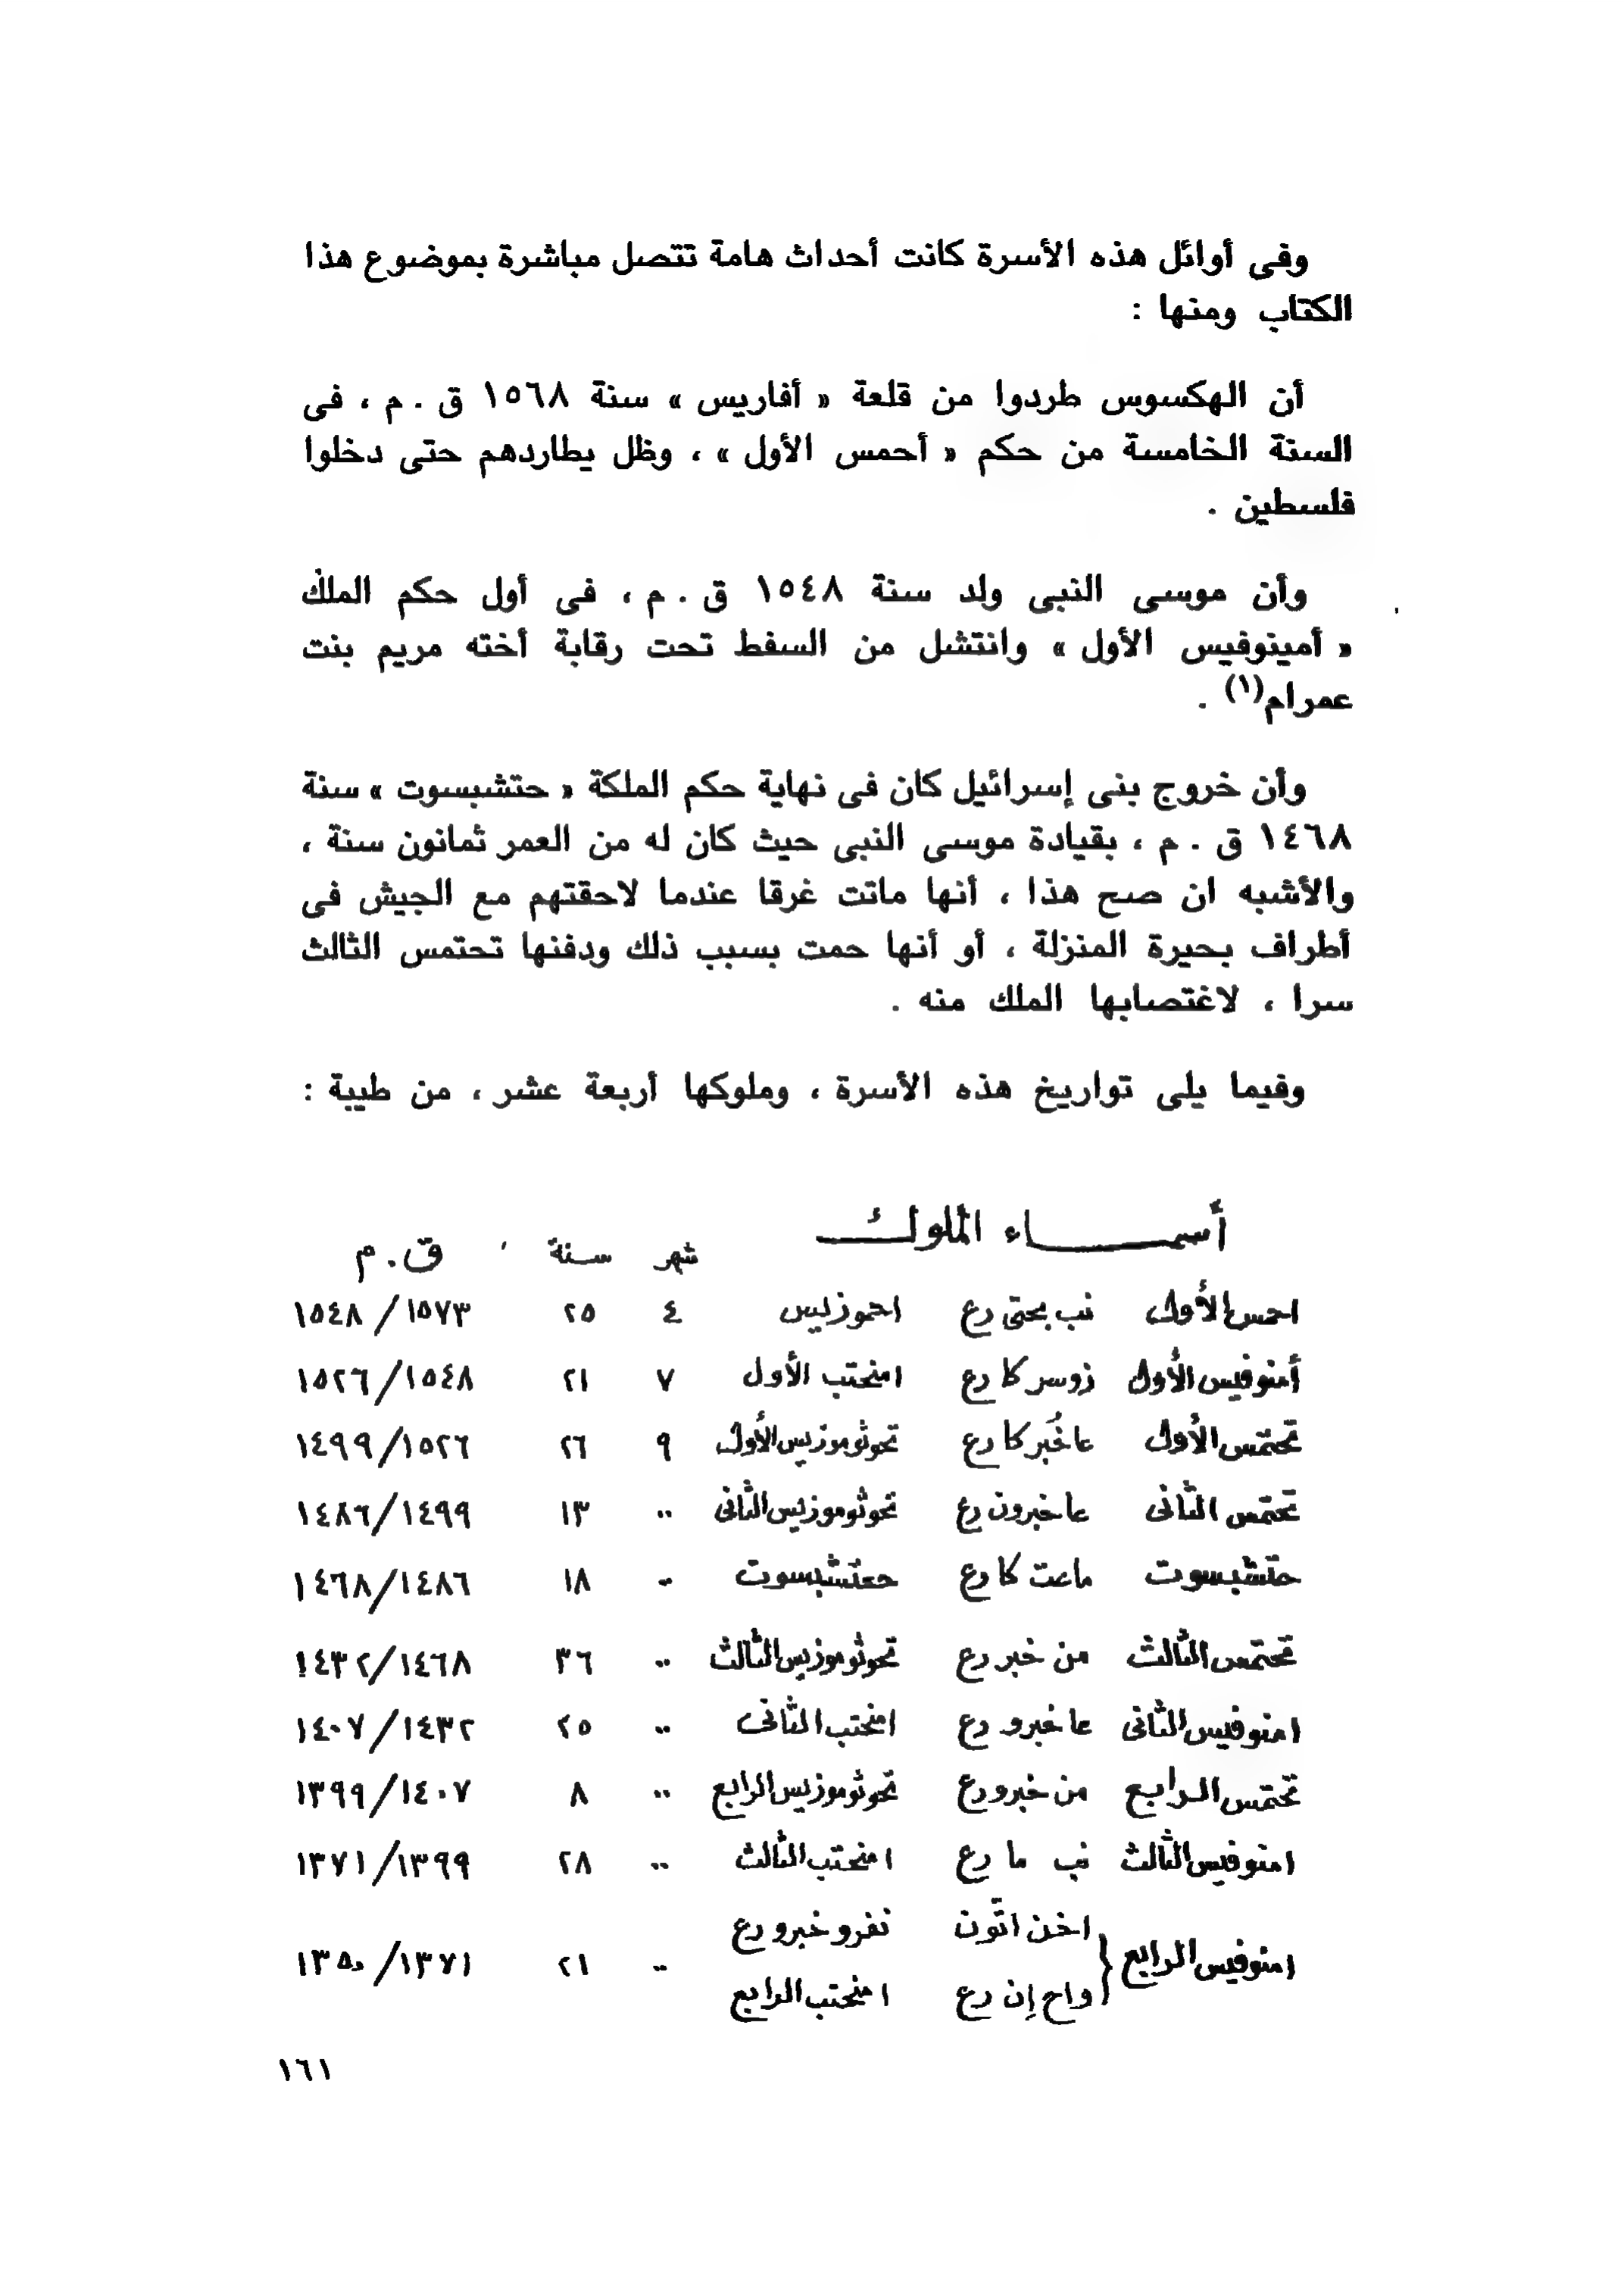 وفى أوائل هذه الأسرة كانت أحداث هامة تتصل مباشرة بموضوع هذا
الكتاب ومنها :
أن الهكسوس طردوا من قلعة « أفاريس » سنة ١٥٦٨ ق . م ، فى
السنة الخامسة من حكم « أحمس الأول » ، وظل يطاردهم حتى دخلوا
فلسطين .
وأن موسى النبى ولد سنة ١٥٤٨ ق . م ، فى أول حكم الملك
« أمينوفيس الأول » وانتشل من السفط تحت رقابة أخته مريم بنت
عمرام(١) .
وأن خروج بنى إسرائيل كان فى نهاية حكم الملكة « حتشبسوت » سنة
١٤٦٨ ق . م ، بقيادة موسى النبى حيث كان له من العمر ثمانون سنة ،
والأشبه ان صح هذا ، أنها ماتت غرقا عندما لاحقتهم مع الجيش فى
أطراف بحيرة المنزلة ، أو أنها حمت بسبب ذلك ودفنها تحتمس الثالث
سرا ، لاغتصابها الملك منه .
وفيما يلى تواريخ هذه الأسرة ، وملوكها أربعة عشر ، من طيبة :
أسماء الملوك شهر سنة ق.م
احمس الأول نب بحتى رع احموزيس ٤ ٢٥ ١٥٧٣/١٥٤٨
أمنوفيس الأول زوسر كا رع امنحتب الأول ٧ ٢١ ١٥٤٨/١٥٢٦
تحتمس الأول عا خبر كا رع تحوثوموزيس الأول ٩ ٢٦ ١٥٢٦/١٤٩٩
تحتمس الثانى عا خبرون رع تحوثوموزيس الثانى .. ١٣ ١٤٩٩/١٤٨٦
حتشبسوت ماعت كا رع حعتشبسوت .. ١٨ ١٤٨٦/١٤٦٨
تحتمس الثالث من خبر رع تحوثوموزيس الثالث .. ٣٦ ١٤٦٨/١٤٣٢
امنوفيس الثانى عا خبرو رع امنحتب الثانى .. ٢٥ ١٤٣٢/١٤٠٧
تحتمس الرابع من خبرو رع تحوثوموزيس الرابع .. ٨ ١٤٠٧/١٣٩٩
امنوفيس الثالث نب ما رع امنحتب الثالث .. ٢٨ ١٣٩٩/١٣٧١
اخن اتون نفرو خبرو رع
امنوفيس الرابع .. ٢١ ١٣٧١/١٣٥٠
واح إن رع امنحتب الرابع
١٦١